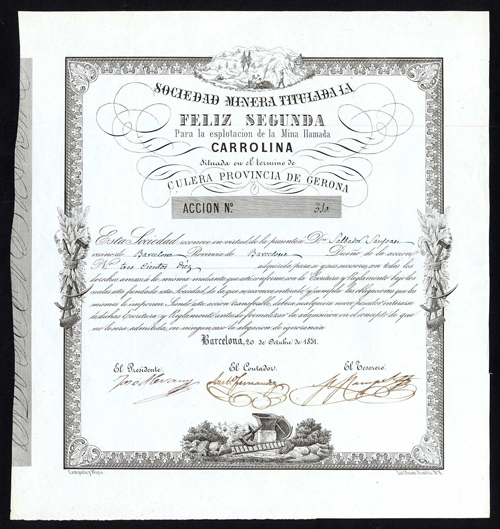 SOCIEDAD MINERA TITULADA LA
FELIZ SEGUNDA
Para la esplotacion de la Mina llamada
CARROLINA
situada en el termino de
CULERA PROVINCIA DE GERONA
ACCION Nº 310.
Esta Sociedad, reconoce en virtud de la presente á Dn. Salvador
vecino de Barcelona Provincia de Barcelona Dueño de la accion
Nº tres cientos diez adquirida para si y sus sucesores con todos los
derechos anexos á la misma mediante que este conforme con la Escritura y Reglamento bajo los
cuales esta fundada esta Sociedad, de la que se encuentra enterado, y á cumplir las obligaciones que los
mismos le imponen. Siendo esta accion transferible, deberá cualquiera nuevo poseedor enterarse
de dichas Escritura y Reglamento antes de formalizar la adquisicion en el concepto de que
no le sera admitida, en ningun caso la alegacion de ignorancia.
Barcelona, 20 de Octubre de 1851.
El Presidente. El Contador. El Tesorero.
José Fernandez